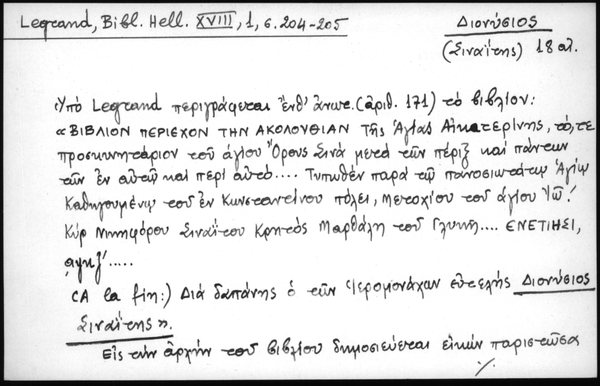 Legrand, Bibl. Hell. XVIII, 1, σ. 204-205
Διονύσιος
(Σιναΐτης) 18 αἰ.
Ὑπὸ Legrand περιγράφεται ἔνθ' ἀνωτ. (ἀριθ. 171) τὸ βιβλίον:
« ΒΙΒΛΙΟΝ ΠΕΡΙΕΧΟΝ ΤΗΝ ΑΚΟΛΟΥΘΙΑΝ τῆς Ἁγίας Αἰκατερίνης, τό, τε
προσκυνητάριον τοῦ ἁγίου Ὄρους Σινᾶ μετὰ τῶν πέριξ καὶ πάντων
τῶν ἐν αὐτῷ καὶ περὶ αὐτό.... Τυπωθὲν παρὰ τῷ πανοσιωτάτῳ Ἁγίῳ
Καθηγουμένῳ τοῦ ἐν Κωνσταντίνου πόλει, Μετοχίου τοῦ ἁγίου Ἰω!
Κὺρ Νικηφόρου Σιναΐτου Κρητὸς Μαρθάλη τοῦ Γλυκῆ.... ΕΝΕΤΙΗΣΙ,
αψκζ'.....
(A la fin:) Διὰ δαπάνης ὁ τῶν Ἱερομονάχων εὐτελὴς Διονύσιος
Σιναΐτης ».
Εἰς τὴν ἀρχὴν τοῦ βιβλίου δημοσιεύεται εἰκὼν παριστῶσα
./.